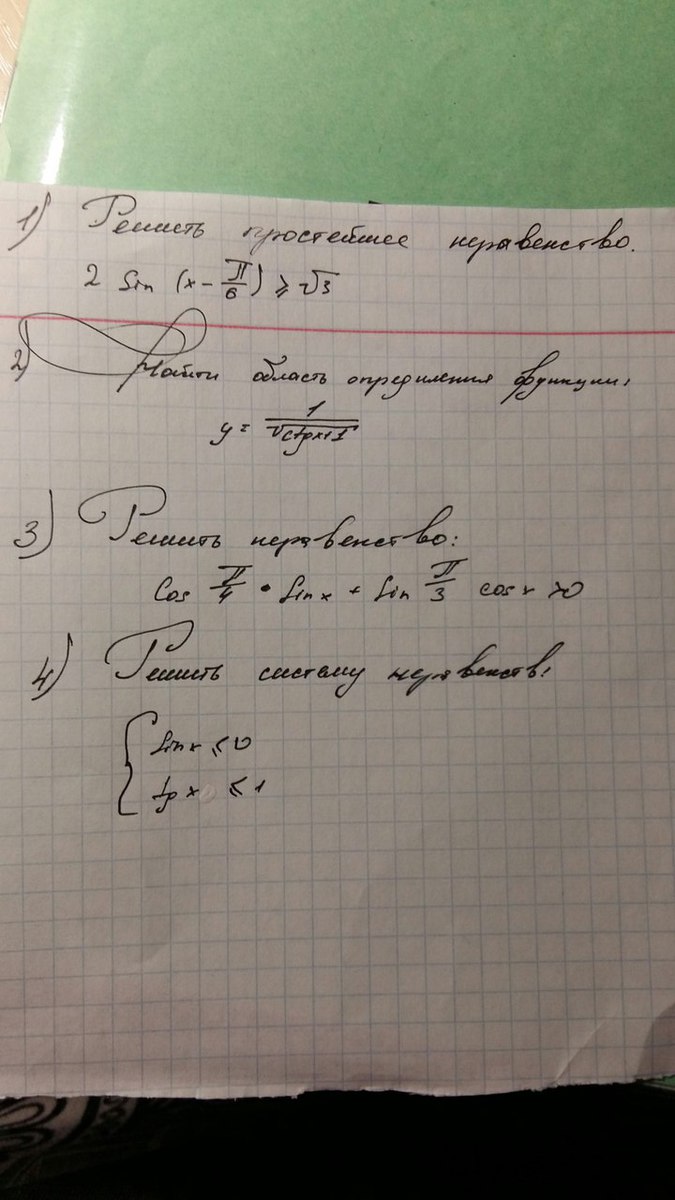 1) Решить простейшее неравенство.
2 Sin (x - π/6) ⩾ √3
2) Найти область определения функции:
y = 1/√(ctgx+1)
3) Решить неравенство:
Cos π/4 • Sinx + Sin π/3 cosx >0
4) Решить систему неравенств:
{ Sinx ⩽ 0
tg x ⩽ 1